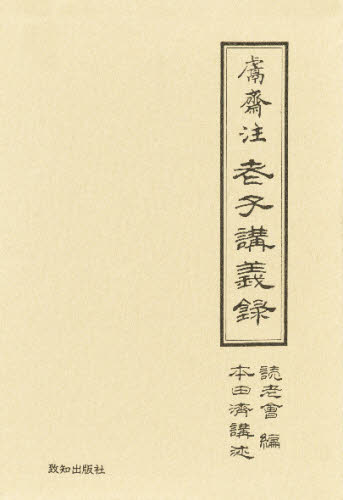 鬳齋注老子講義録
読老會 編
本田濟講述
致知出版社